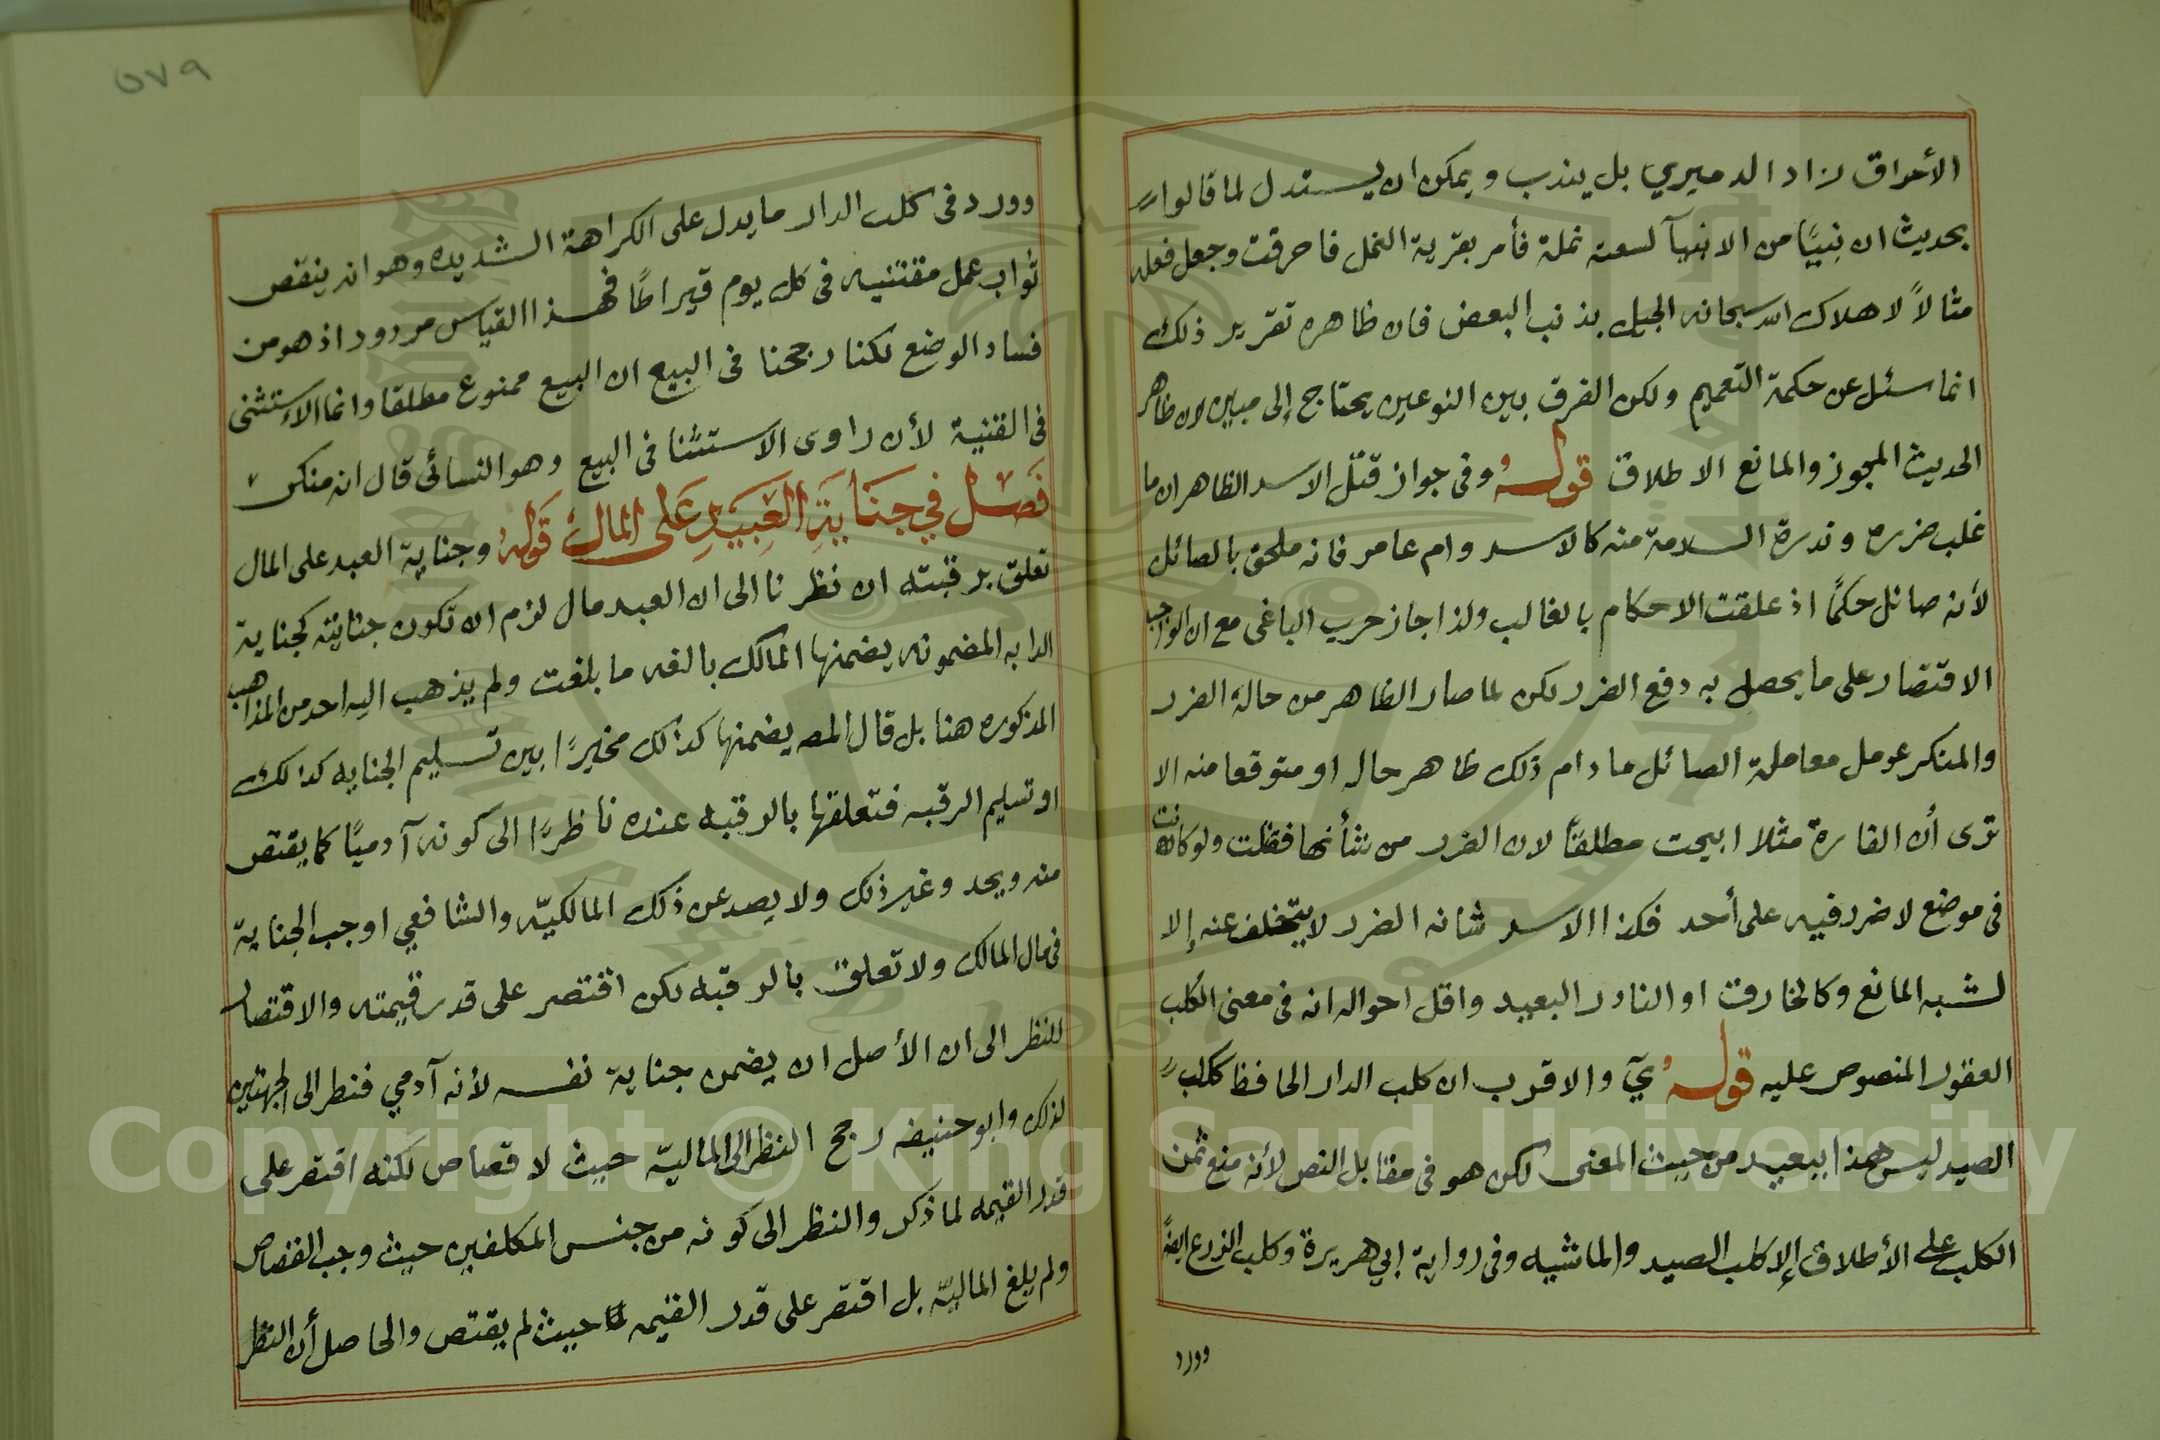 الأحراق زاد الدميري بل يندب ويمكن ان يستدل لما قالوا
بحديث ان نبيًا من الانبيآ لسعته نملة فأمر بقرية النمل فاحرقت وجعل فعله
مثالاً لاهلاك الله سبحانه الجيل بذنب البعض فان ظاهره تقرير ذلك
انما سئل عن حكمة التعميم ولكن الفرق بين النوعين يحتاج إلى مبين لان ظاهر
الحديث المجوز والمانع الاطلاق قوله وفي جواز قتل الاسد الظاهر ان ما
غلب ضرره وندرة السلامة منه كالاسد وام عامر فانه ملحق بالصائل
لأنه صائل حكمًا اذ علقت الاحكام بالغالب ولذا جاز حرب الباغى مع ان الواجب
الاقتصار على ما يحصل به دفع الضرر لكن لما صار الظاهر من حاله الضرر
والمنكر عومل معاملة الصائل مادام ذلك ظاهر حاله او متوقعا منه الا
ترى أن الفارة مثلا ابيحت مطلقاً لان الضرر من شأنها فقتلت ولو كانت
فى موضع لا ضرر فيه على أحد فكذا الاسد شانه الضرر لا يتخلف عنه إلا
لشبه المانع وكالخارق او النادر البعيد واقل احواله انه فى معنى الكلب
العقور المنصوص عليه قوله ي والاقرب ان كلب الدار الحافظ ككلب
الصيد ليس هذا ببعيد من حيث المعنى لكن هو فى مقابل النص لأنه منع ثمن
الكلب على الأطلاق إلا كلب الصيد والماشيه وفى رواية ابي هريرة وكلب الزرع ايضاً
وورد
٥٧٩
وورد فى كلب الدار ما يدل على الكراهة الشديده وهو انه ينقص
ثواب عمل مقتنيه فى كل يوم قيراطًا فهذا القياس مردود اذ هو من
فساد الوضع لكنا رجحنا فى البيع ان البيع ممنوع مطلقا وانما الاستثنى
فى القنية لأن راوى الاستثنا فى البيع وهو النسائى قال انه منكر
فصل في جناية العبيد على المال قوله وجناية العبد على المال
تعلق برقبته ان نظرنا الى ان العبد مال لزم ان تكون جنايته كجناية
الدابه المضمونه يضمنها المالك بالغه ما بلغت ولم يذهب اليه احد من المذاهب
المذكوره هنا بل قال المصه يضمنها كذلك مخيرًا بين تسليم الجنايه كذلك
او تسليم الرقبه فتعلقها بالرقبه عنده ناظرًا الى كونه آدميًا كما يقتص
منه ويحد وغير ذلك ولا يصد عن ذلك المالكيّه والشافعي اوجب الجناية
فى مال المالك ولا تعلق بالرقبه لكن اقتصر على قدر قيمته والاقتصار
للنظر الى ان الأصل ان يضمن جناية نفسه لأنه آدمي فنظر الى الجهتين
لذلك وابو حنيفه رجح النظر الى الماليّه حيث لا قصاص لكنه اقتصر على
قدر القيمه لما ذكر والنظر الى كونه من جنس المكلفين حيث وجب القصاص
ولم يلغ الماليّه بل اقتصر على قدر القيمه لما حيث لم يقتص والحاصل أن النظر
Copyright © King Saud University
1957